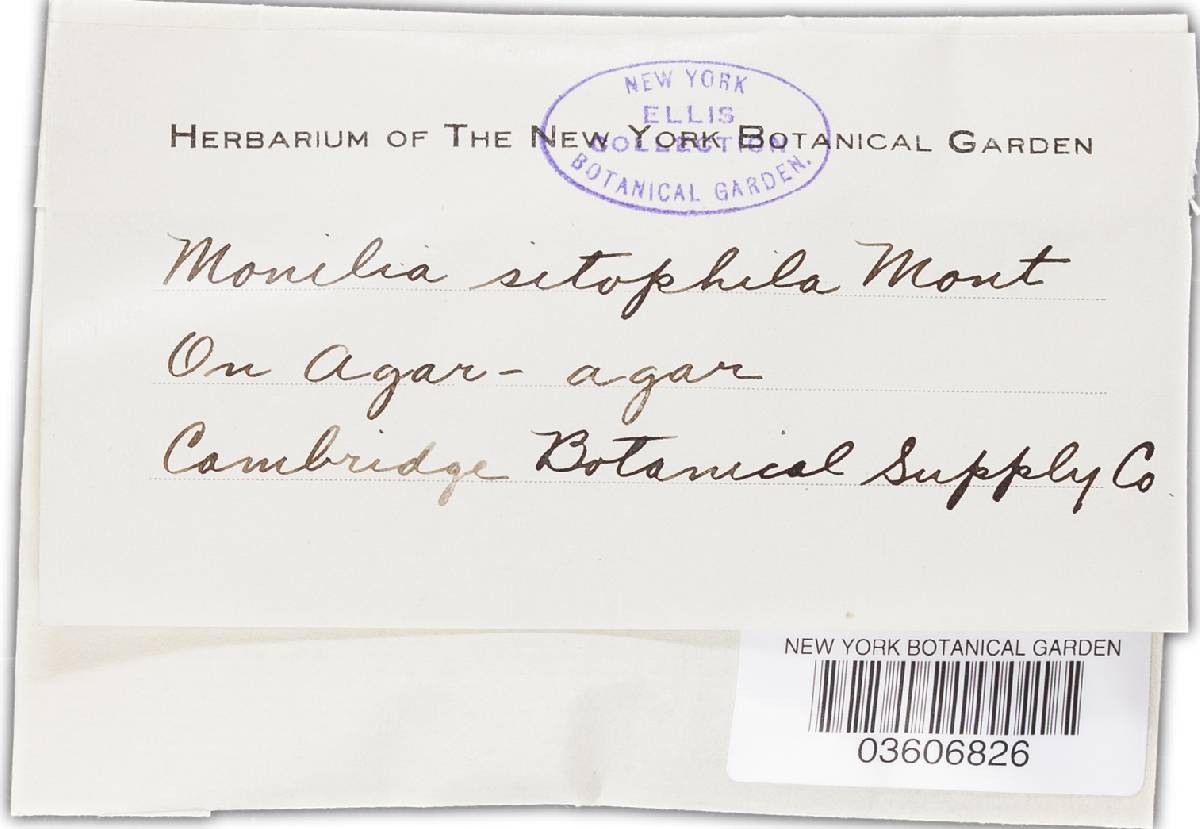 NEW YORK
ELLIS
COLLECTION
BOTANICAL GARDEN.
HERBARIUM OF THE NEW YORK BOTANICAL GARDEN
Monilia sitophila Mont
On Agar-agar
Cambridge Botanical Supply Co
NEW YORK BOTANICAL GARDEN
03606826